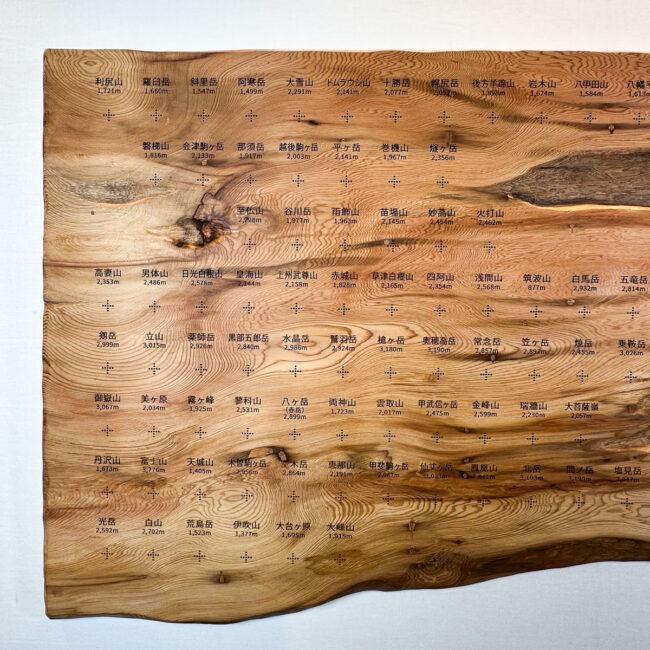 利尻山 羅臼岳 斜里岳 阿寒岳 大雪山 トムラウシ山 十勝岳 幌尻岳 後方羊蹄山 岩木山 八甲田山 八幡平
1,721m 1,660m 1,547m 1,499m 2,291m 2,141m 2,077m 2,052m 1,898m 1,624m 1,584m 1,613m
磐梯山 会津駒ヶ岳 那須岳 越後駒ヶ岳 平ヶ岳 巻機山 燧ヶ岳
1,816m 2,133m 1,917m 2,003m 2,141m 1,967m 2,356m
至仏山 谷川岳 雨飾山 苗場山 妙高山 火打山
2,228m 1,977m 1,963m 2,145m 2,454m 2,462m
高妻山 男体山 日光白根山 皇海山 上州武尊山 赤城山 草津白根山 四阿山 浅間山 筑波山 白馬岳 五竜岳
2,353m 2,486m 2,578m 2,144m 2,158m 1,828m 2,165m 2,354m 2,568m 877m 2,932m 2,814m
剱岳 立山 薬師岳 黒部五郎岳 水晶岳 鷲羽岳 槍ヶ岳 奥穂高岳 常念岳 笠ヶ岳 焼岳 乗鞍岳
2,999m 3,015m 2,926m 2,840m 2,986m 2,924m 3,180m 3,190m 2,857m 2,897m 2,455m 3,026m
御嶽山 美ヶ原 霧ヶ峰 蓼科山 八ヶ岳 両神山 雲取山 甲武信ヶ岳 金峰山 瑞牆山 大菩薩嶺
(赤岳)
3,067m 2,034m 1,925m 2,531m 2,899m 1,723m 2,017m 2,475m 2,599m 2,230m 2,057m
丹沢山 富士山 天城山 木曽駒ヶ岳 空木岳 恵那山 甲斐駒ヶ岳 仙丈ヶ岳 鳳凰山 北岳 間ノ岳 塩見岳
1,673m 3,776m 1,405m 2,956m 2,864m 2,191m 2,967m 3,033m 2,841m 3,193m 3,190m 3,047m
光岳 白山 荒島岳 伊吹山 大台ヶ原 大峰山
2,592m 2,702m 1,523m 1,377m 1,695m 1,915m